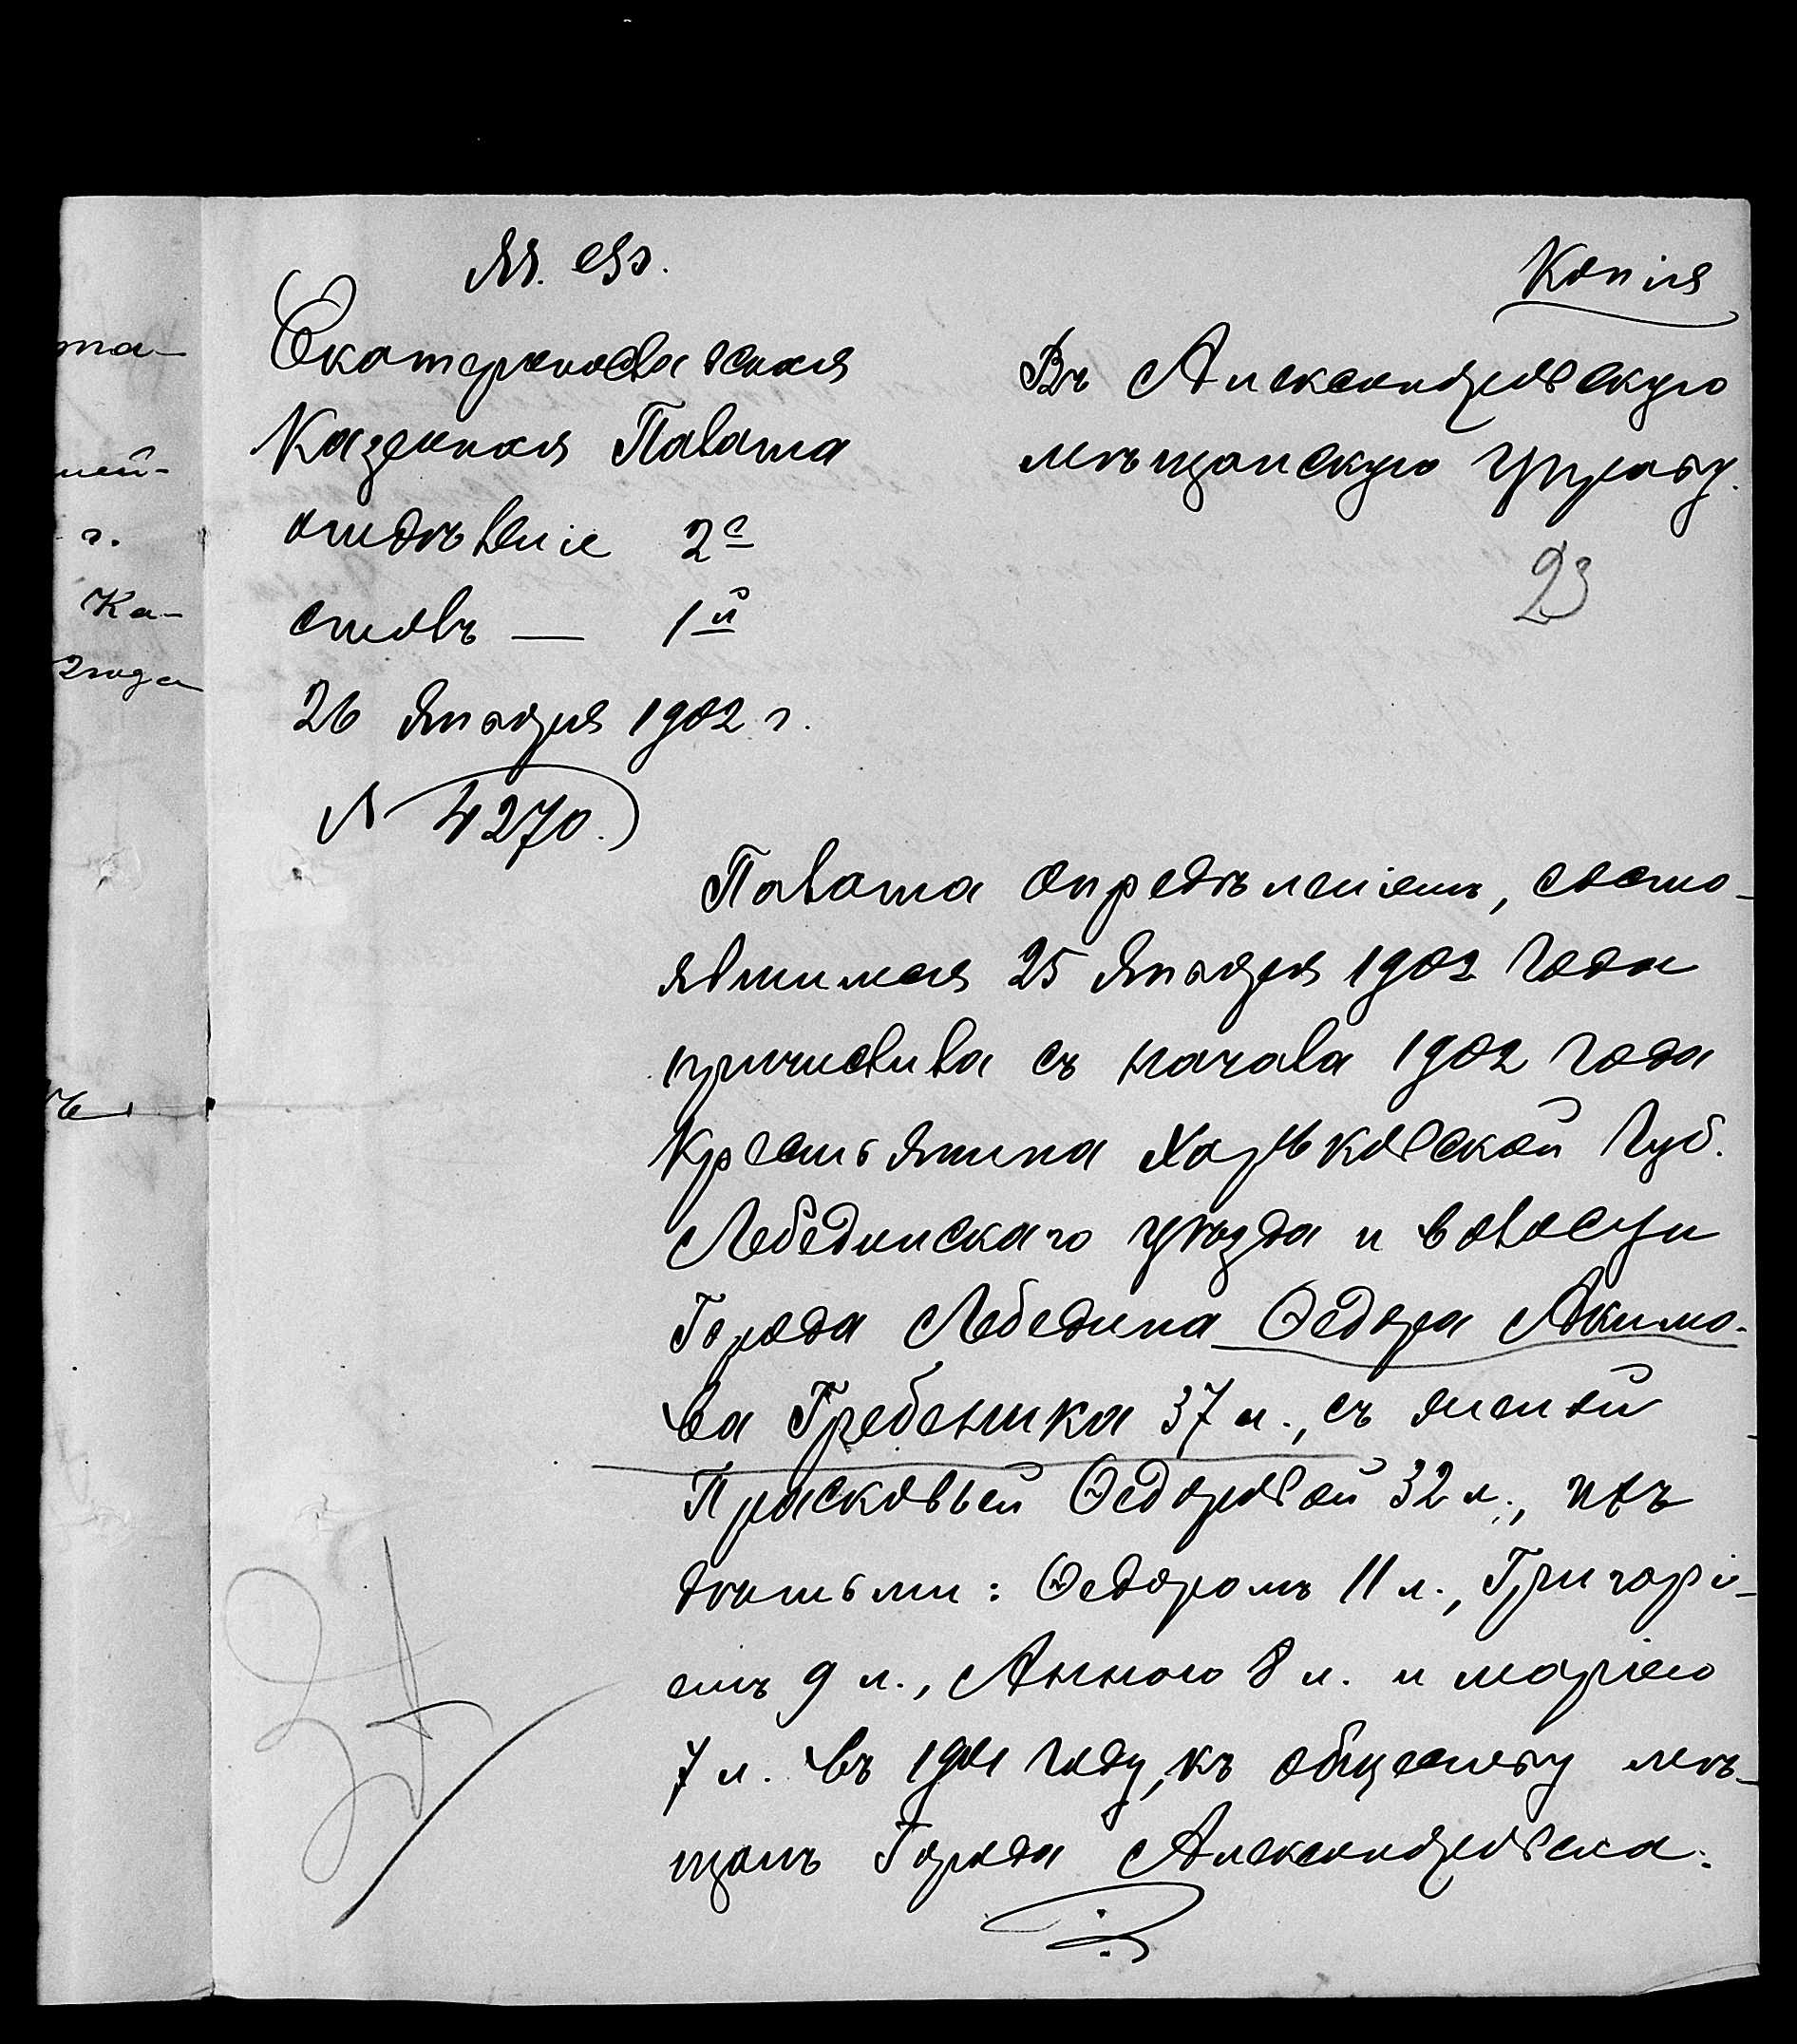 М. Ф.
Копія
Екатеринославская
Казенная Палата
отдѣленіе 2е
столъ — 1й
26 Января 1902 г.
№ 4270.
Въ Александровскую
мѣщанскую управу.
23
Палата опредѣленіемъ, состо-
явшимся 25 Января 1902 года
причислила съ начала 1902 года
Крестьянина Харьковской губ.
Лебединскаго уѣзда и волости
Города Лебедина Ѳедора Акимо-
ва Гребеника 37 л., съ женой
Прасковьей Ѳедоровой 32 л.,
дѣтьми: Ѳедоромъ 11 л., Григорі-
емъ 9 л., Анною 8 л. и маріею
7 л. въ 1901 году, къ обществу мѣ-
щанъ Города Александровска.
та-
ней-
г.
Ка-
2 года